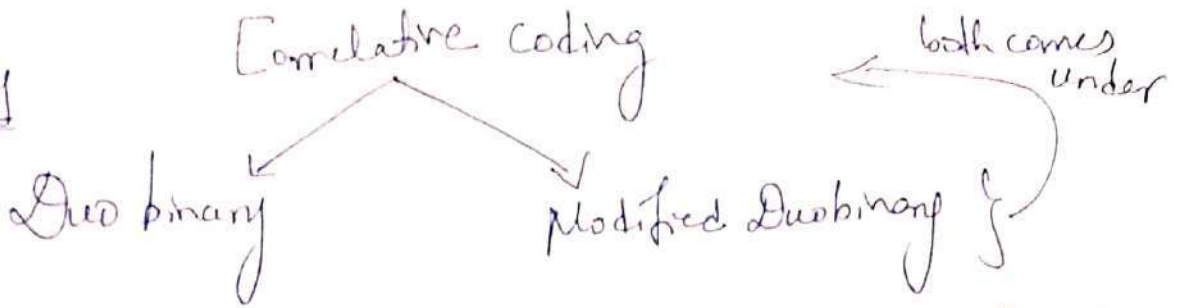 Correlative coding
both comes
under
Duobinary
Modified Duobinary }